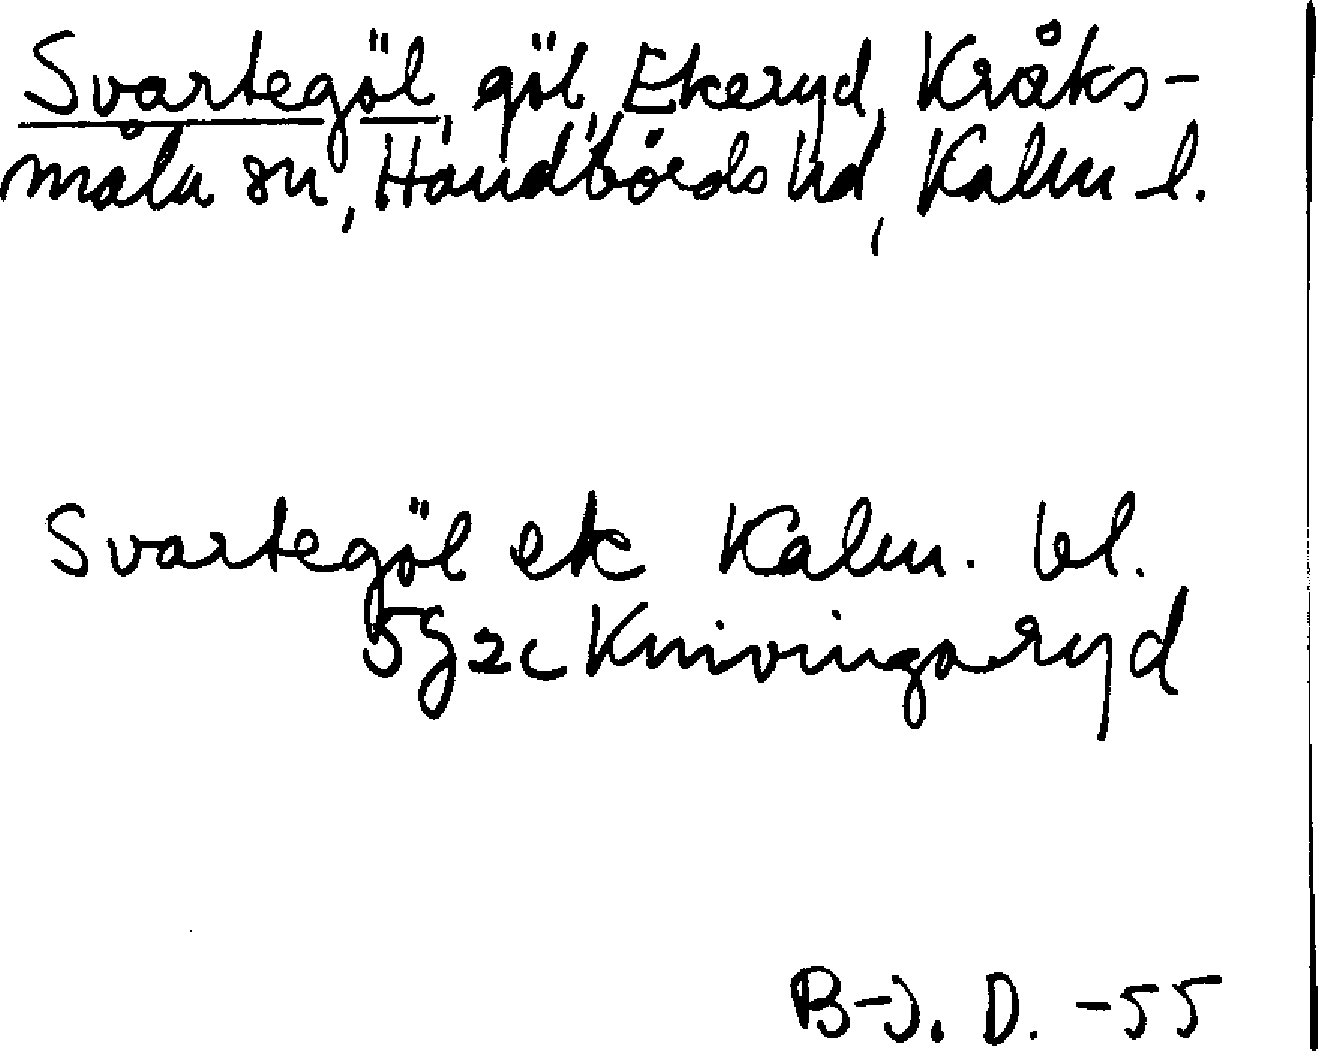 Svartegöl, göl, Ekeryd, Kråks-
måla sn, Handbörds hd, Kalm l.
Svartegöl ek Kalm. bl.
5G2c Knivingaryd
B-J. D. -55